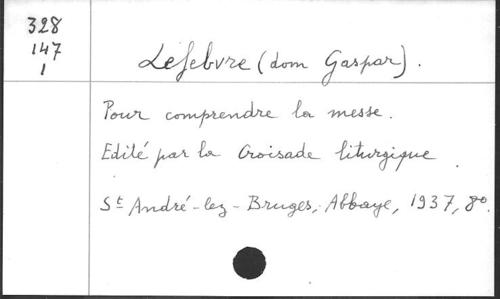 328
147
1
Lefebvre (dom Gaspar).
Pour comprendre la messe.
Edité par la Croisade liturgique.
St André-lez-Bruges, Abbaye, 1937, 8º.